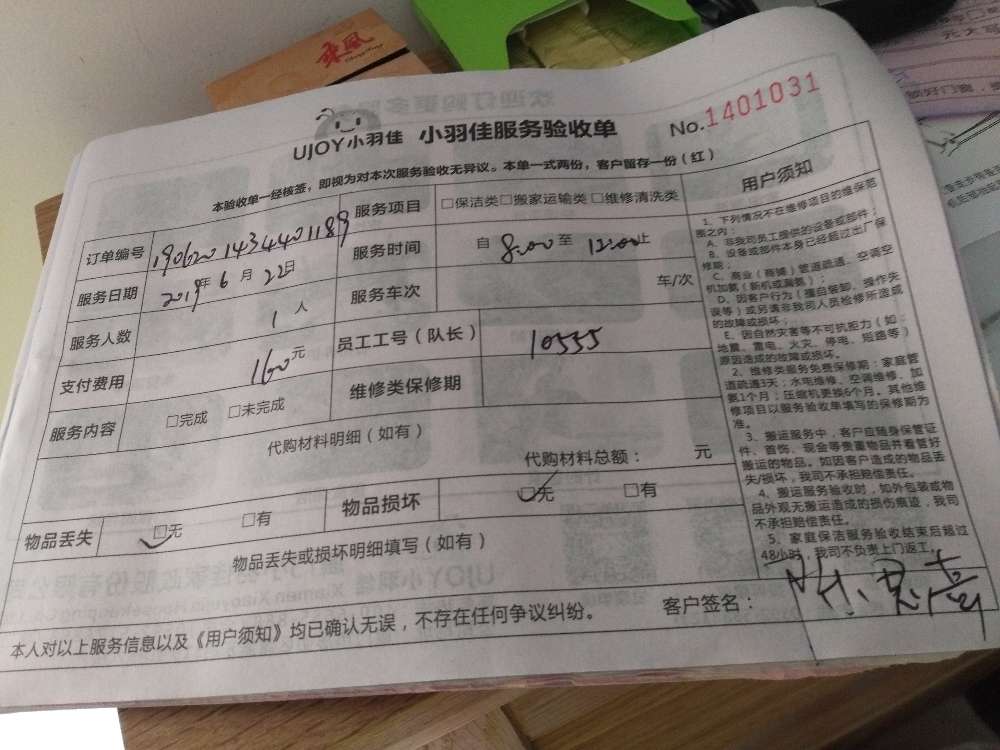 乘风
UJOY小羽佳 小羽佳服务验收单
No.1401031
本验收单一经核签，即视为对本次服务验收无异议。本单一式两份，客户留存一份（红）
订单编号 1906201434401189 服务项目 □保洁类□搬家运输类□维修清洗类
服务日期 2019年6月22日 服务时间 自 8:00 至 12:00 止
服务人数 1 人 服务车次 车/次
支付费用 160元 员工工号（队长） 10555
服务内容 □完成 □未完成 维修类保修期
代购材料明细（如有）
代购材料总额： 元
物品丢失 □无 □有 物品损坏 □无 □有
物品丢失或损坏明细填写（如有）
本人对以上服务信息以及《用户须知》均已确认无误，不存在任何争议纠纷。 客户签名：
用户须知
1、下列情况不在维修项目的维保范
围之内：
A、非我司员工提供的设备或部件；
B、设备或部件本身已经超过出厂保
修期；
C、商业（商铺）管道疏通、空调空
机加氨（新机或漏氨）；
D、因客户行为（擅自装卸、操作失
误等）或另请非我司人员检修所造成
的故障或损坏；
E、因自然灾害等不可抗拒力（如：
地震、雷电、火灾、停电、短路等）
原因造成的故障或损坏。
2、维修类服务免费保修期：家庭管
道疏通3天；水电维修、空调维修、加
氨1个月；压缩机更换6个月。其他维
修项目以服务验收单填写的保修期为
准。
3、搬运服务中，客户应随身保管证
件、首饰、现金等贵重物品并看管好
搬运的物品。如因客户造成的物品丢
失/损坏，我司不承担赔偿责任。
4、搬运服务验收时，如外包装或物
品外观无搬运造成的损伤痕迹，我司
不承担赔偿责任。
5、家庭保洁服务验收结束后超过
48小时，我司不负责上门返工。